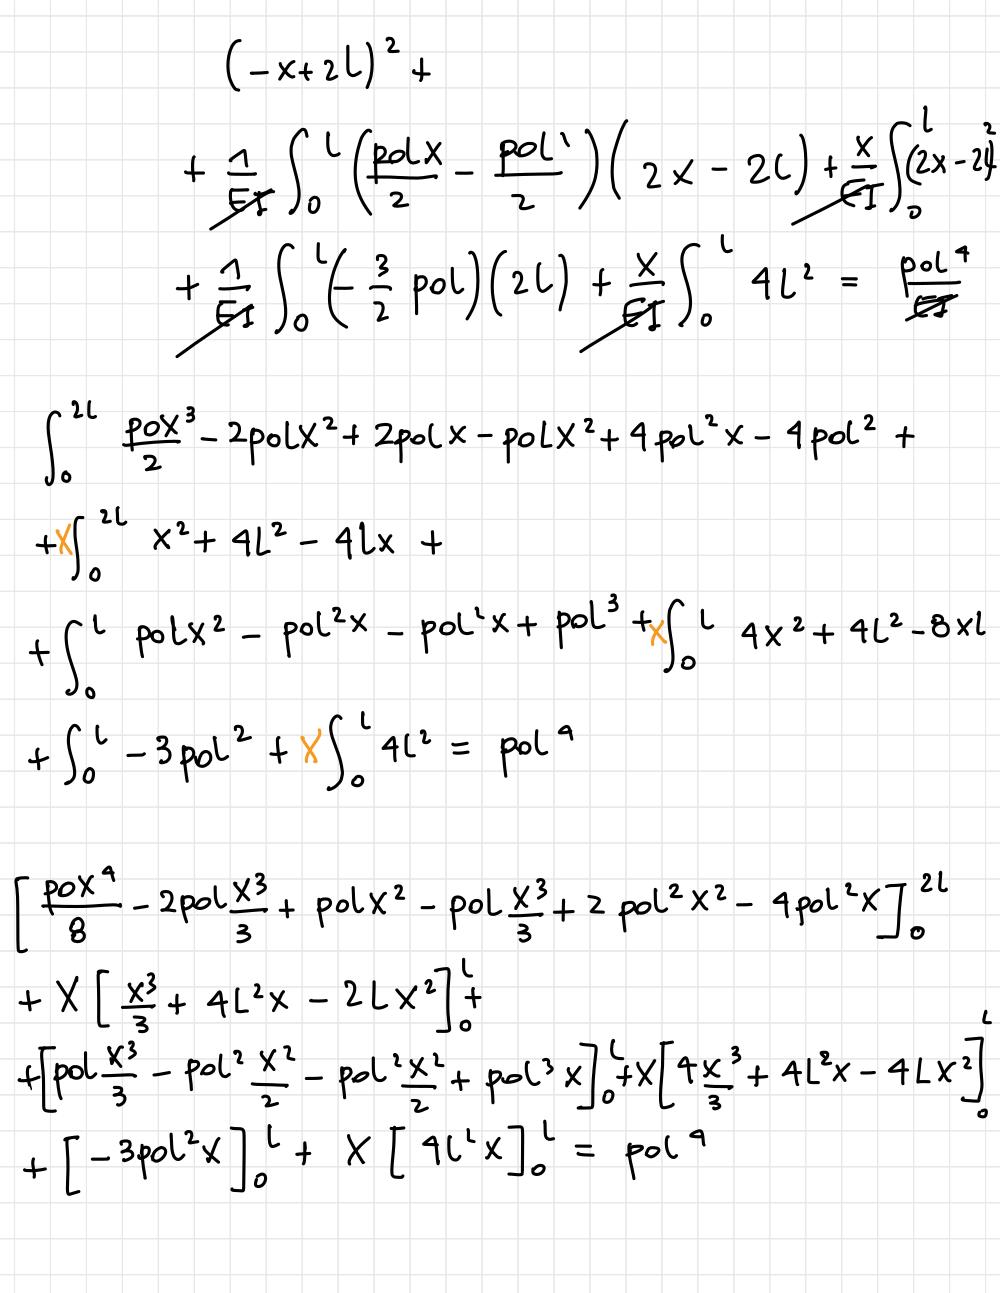 (-x+2l)² +
+ 1/EI ∫₀ˡ (polx/2 - pol²/2)(2x - 2l) + X/EI ∫₀ˡ (2x - 2l)²
+ 1/EI ∫₀ˡ (- 3/2 pol)(2l) + X/EI ∫₀ˡ 4l² = pol⁴/EI
∫₀²ˡ pox³/2 - 2polx² + 2polx - polx² + 4pol²x - 4pol² +
+ X∫₀²ˡ x² + 4l² - 4lx +
+ ∫₀ˡ polx² - pol²x - pol²x + pol³ + X∫₀ˡ 4x² + 4l² - 8xl
+ ∫₀ˡ - 3pol² + X∫₀ˡ 4l² = pol⁴
[pox⁴/8 - 2pol x³/3 + polx² - pol x³/3 + 2pol²x² - 4pol²x]₀²ˡ
+ X [x³/3 + 4l²x - 2lx²]₀ˡ +
+ [pol x³/3 - pol² x²/2 - pol² x²/2 + pol³x]₀ˡ + X[4x³/3 + 4l²x - 4lx²]₀ˡ
+ [-3pol²x]₀ˡ + X [4l²x]₀ˡ = pol⁴